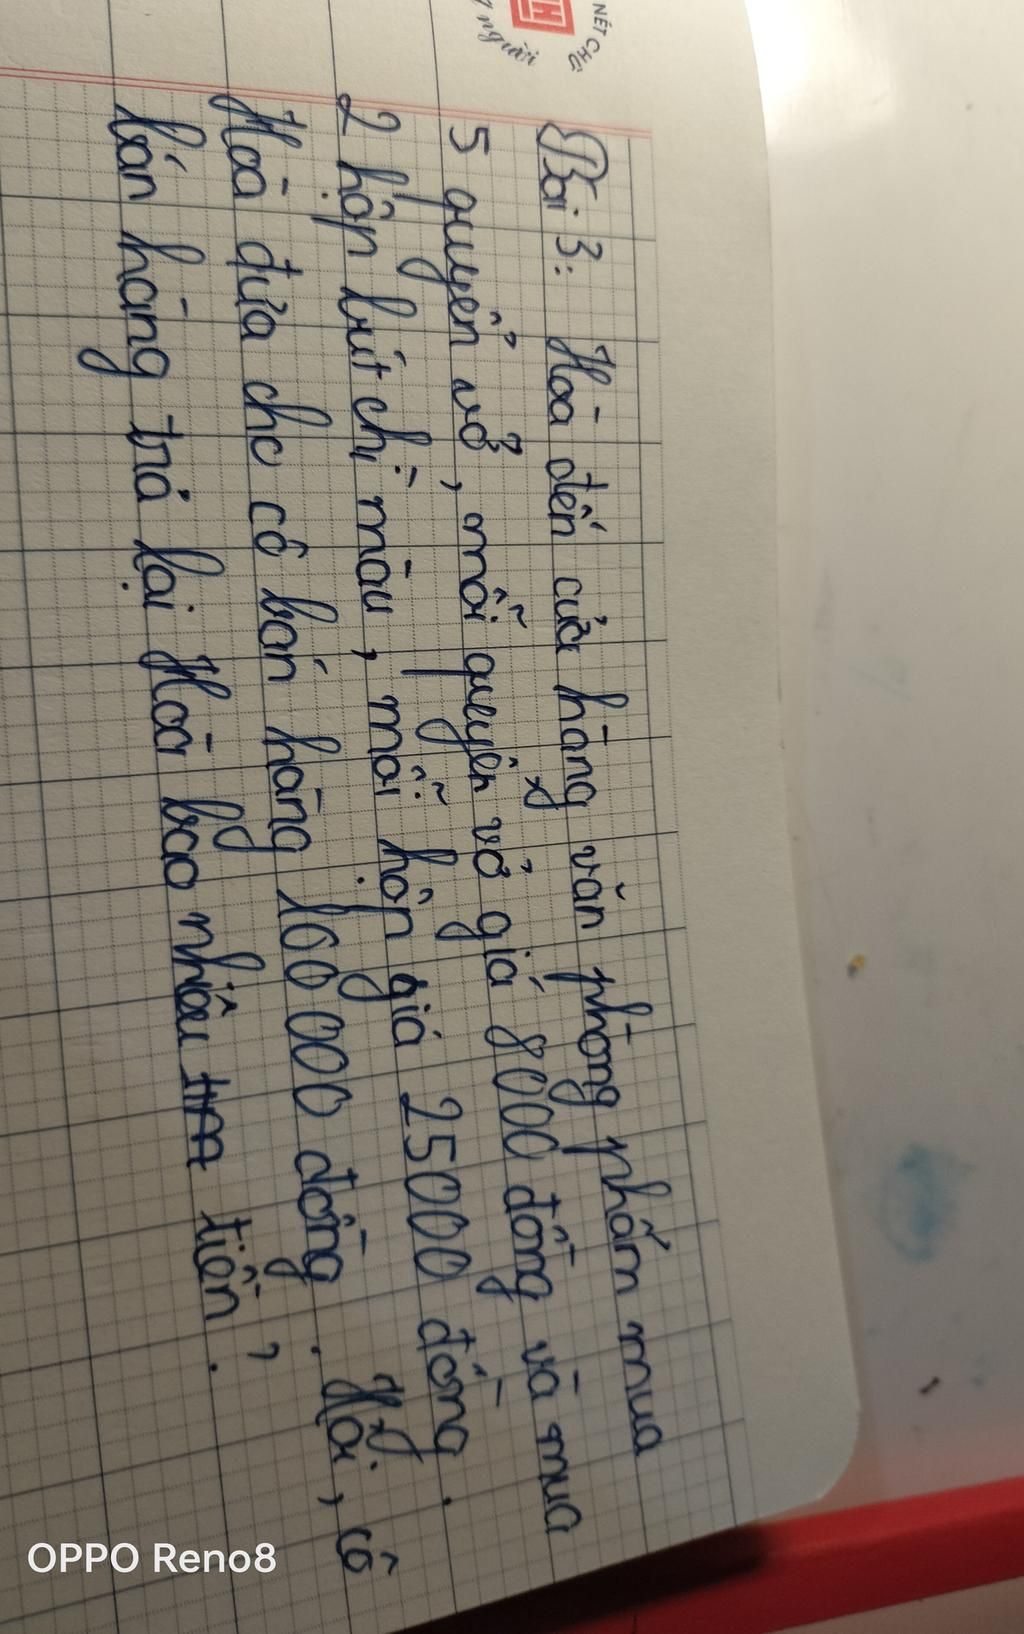 NÉT CHỮ
người
Bài 3: Hoà đến cửa hàng văn phòng phẩm mua
5 quyển vở, mỗi quyển vở giá 8000 đồng và mua
2 hộp bút chì màu, mỗi hộp giá 25000 đồng.
Hoà đưa cho cô bán hàng 100 000 đồng. Hỏi, cô
bán hàng trả lại Hoà bao nhiêu tiền?
OPPO Reno8